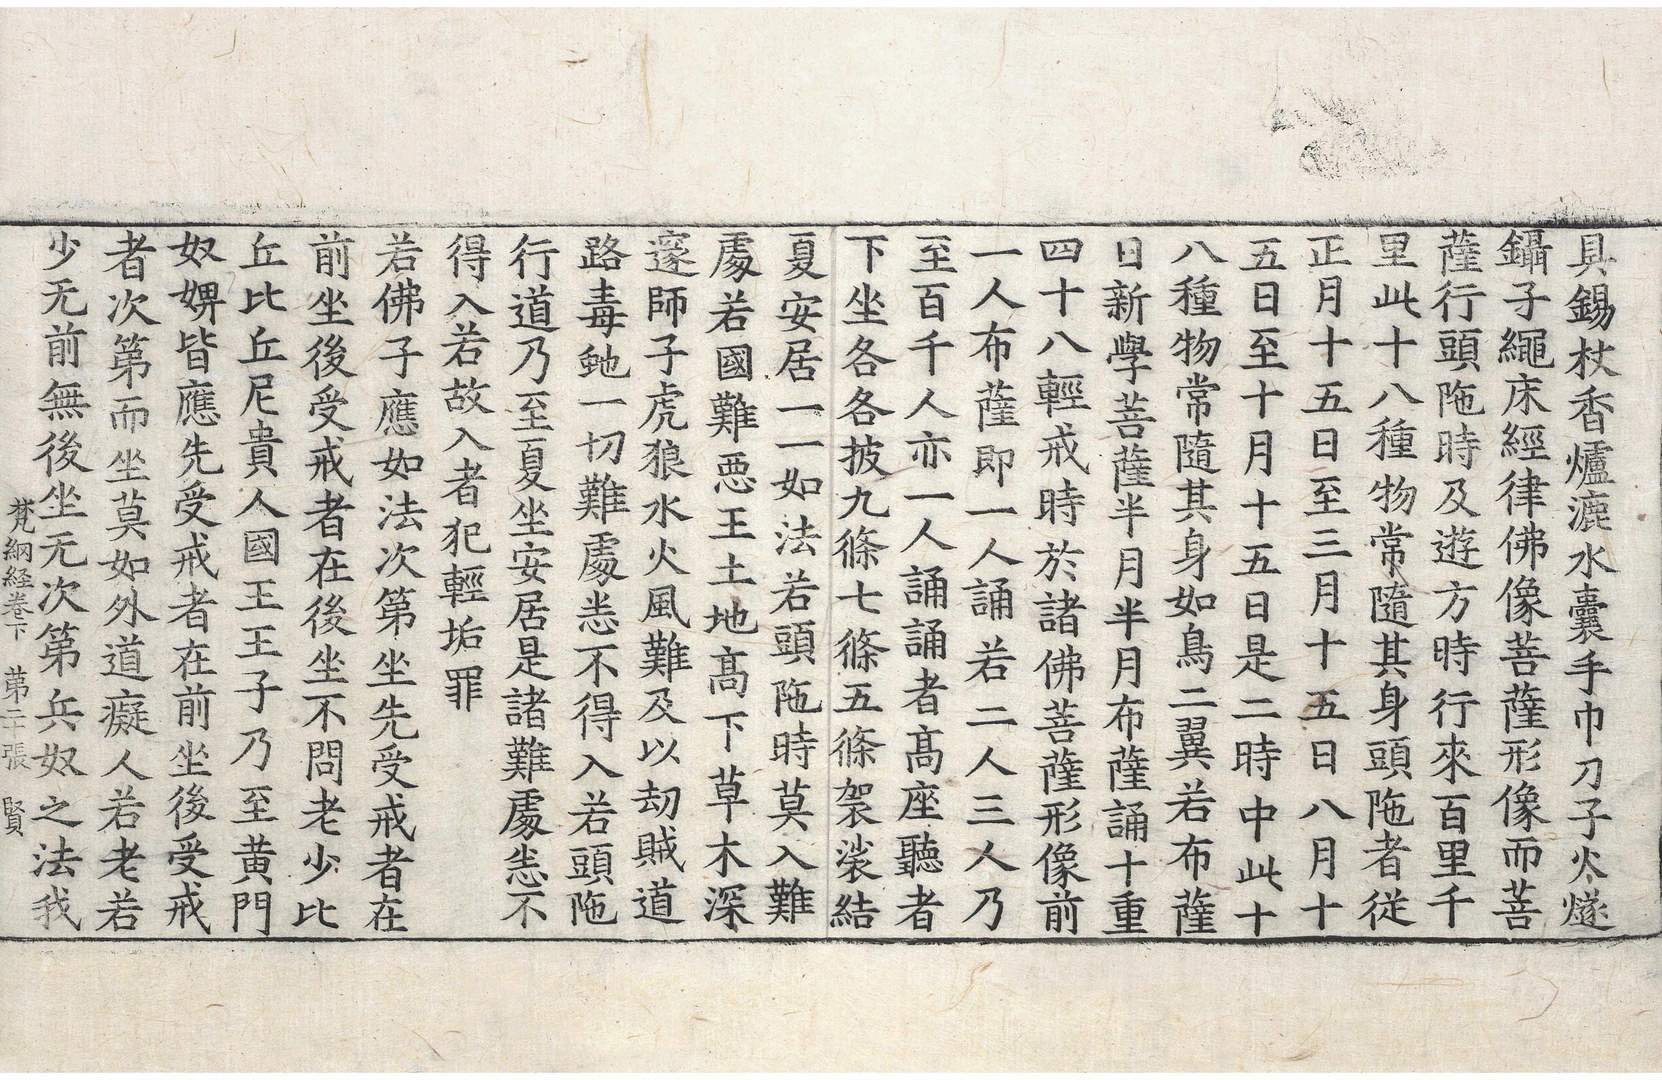 具錫杖香爐漉水囊手巾刀子火燧
鑷子繩床經律佛像菩薩形像而菩
薩行頭陁時及遊方時行來百里千
里此十八種物常隨其身頭陁者從
正月十五日至三月十五日八月十
五日至十月十五日是二時中此十
八種物常隨其身如鳥二翼若布薩
日新學菩薩半月半月布薩誦十重
四十八輕戒時於諸佛菩薩形像前
一人布薩即一人誦若二人三人乃
至百千人亦一人誦誦者高座聽者
下坐各各披九條七條五條袈裟結
夏安居一一如法若頭陁時莫入難
處若國難惡王土地高下草木深
邃師子虎狼水火風難及以劫賊道
路毒虵一切難處恙不得入若頭陁
行道乃至夏坐安居是諸難處恙不
得入若故入者犯輕垢罪
若佛子應如法次第坐先受戒者在
前坐後受戒者在後坐不問老少比
丘比丘尼貴人國王王子乃至黄門
奴婢皆應先受戒者在前坐後受戒
者次第而坐莫如外道癡人若老若
少无前無後坐无次第兵奴之法我
梵網経卷下 第二十張 賢